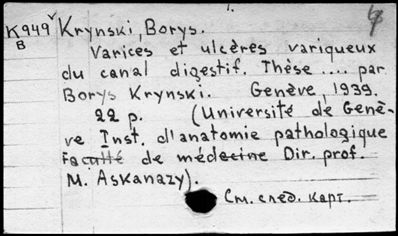 1.
K949 Krynski, Borys.
B
Varices et ulcères variqueux
du canal digestif. Thèse .... par
Borys Krynski. Genève, 1939.
22 p. (Université de Genè-
ve Inst. d'anatomie pathologique
Faculté de médecine Dir. prof.
M. Askanazy).
См. след. карт.